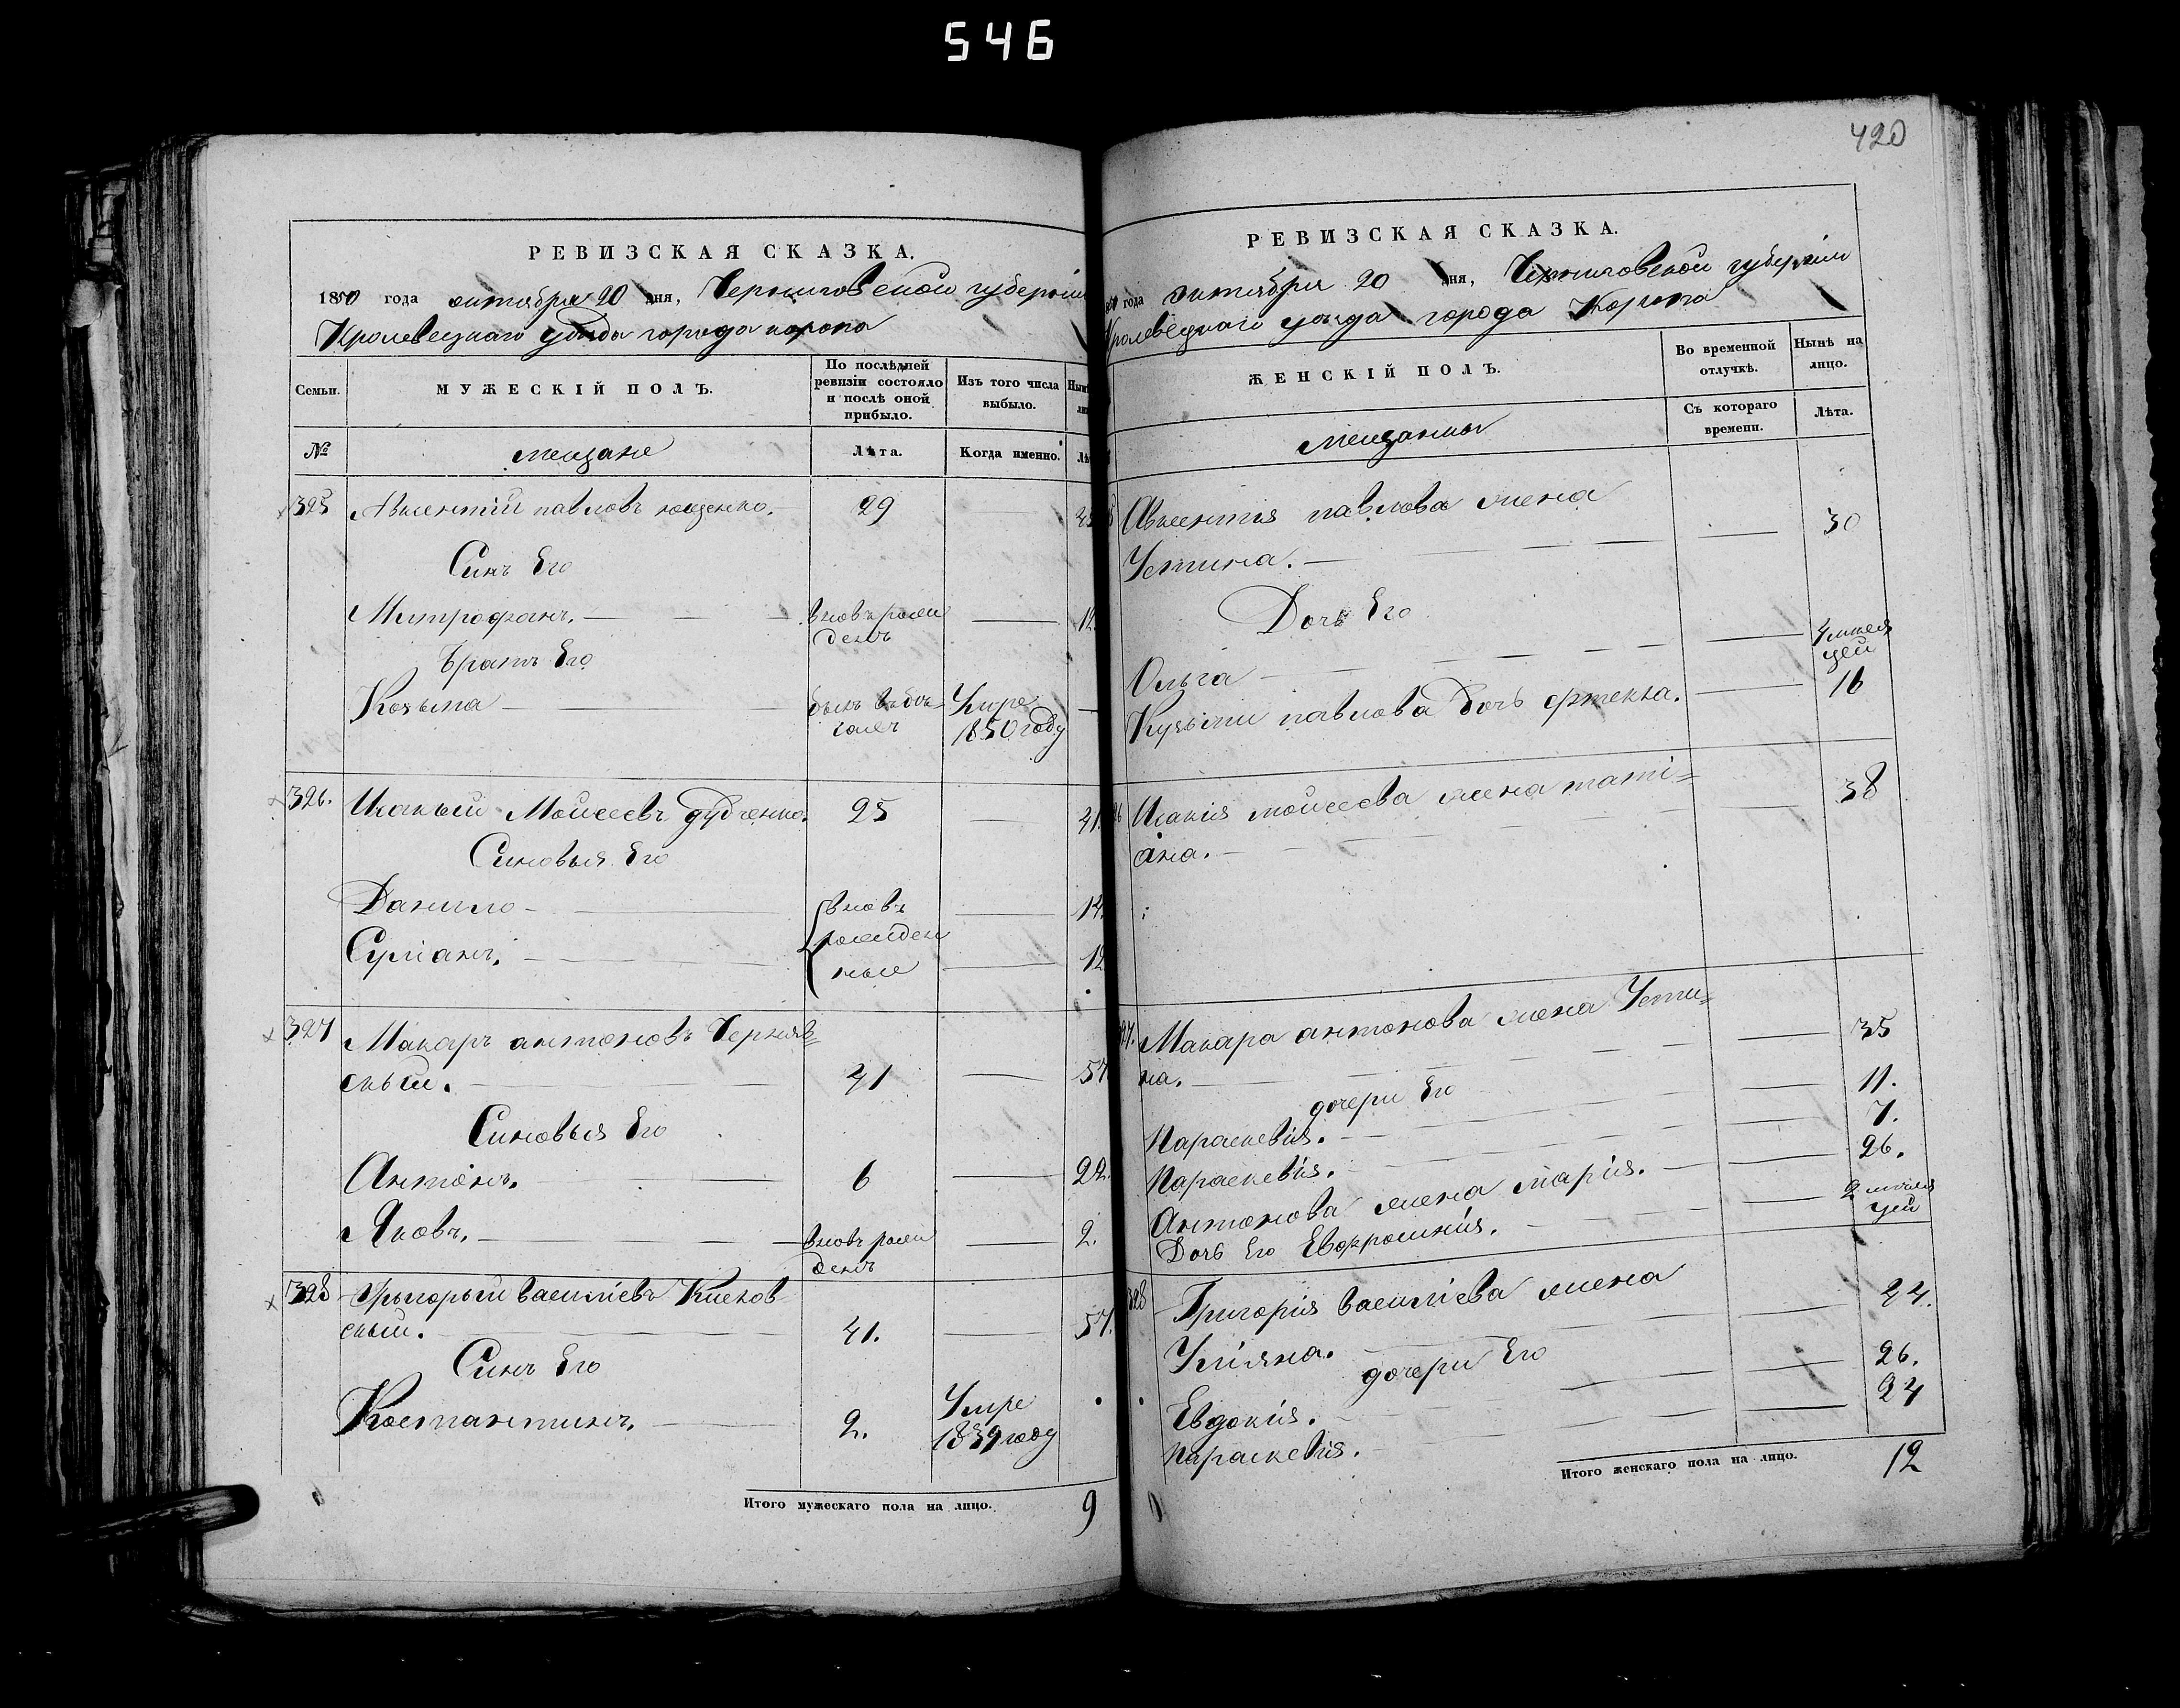 546
420
РЕВИЗСКАЯ СКАЗКА.
1850 года октября 20 дня, Черниговской губернии
Кролевецкаго уѣзда города коропа
Семьи.
МУЖЕСКІЙ ПОЛЪ.
По послѣдней ревизіи состояло и послѣ оной прибыло.
Изъ того числа выбыло.
№
мещане
Лѣта.
Когда именно.
325 Авксентій павловъ ющенко. 29
Синъ Его
Митрофанъ. вновь рожденъ 12
Братъ Его
Козьма Умре 1850 году
326. Исакый Моисеевъ дудченко. 25 41
Синовья Его
Данило вновь 14
рожден
Суліанъ. ные 12
327 Макаръ антоновъ Черняв=
скый. 41 57
Синовья Его
Антонъ. 6 22.
Яковъ. вновь рожденъ 2.
328 Грыгорый василіевъ Киенов
скый. 41. 57.
Синъ Его
Костантинъ. 2. Умре 1839 году
Итого мужескаго пола на лицо. 9
РЕВИЗСКАЯ СКАЗКА.
года октября 20 дня, Черниговской губерніи
Кролевецкаго уезда города Коропа
ЖЕНСКІЙ ПОЛЪ.
Во временной отлучкѣ.
Нынѣ на лицо.
Съ котораго времени.
Лѣта.
мещанкы
Авксентія павлова жена
Устина. 30
Дочь Его
Ольга 4 месяцей
Кузьмы павлова дочь фтекла. 16
Исакія моисеева жена тати=
ана. 38
327. Макара антонова жена Усти=
на. 35
дочери Его
Параскевія. 11.
Параскевія. 7.
Антонова жена марія. 26.
Дочь Его Евфросинія. 2 месяцей
328 Григорія василіева жена
Уліяна. 44.
дочери Его
Евдокія. 26.
Параскевія. 24
Итого женскаго пола на лицо. 12